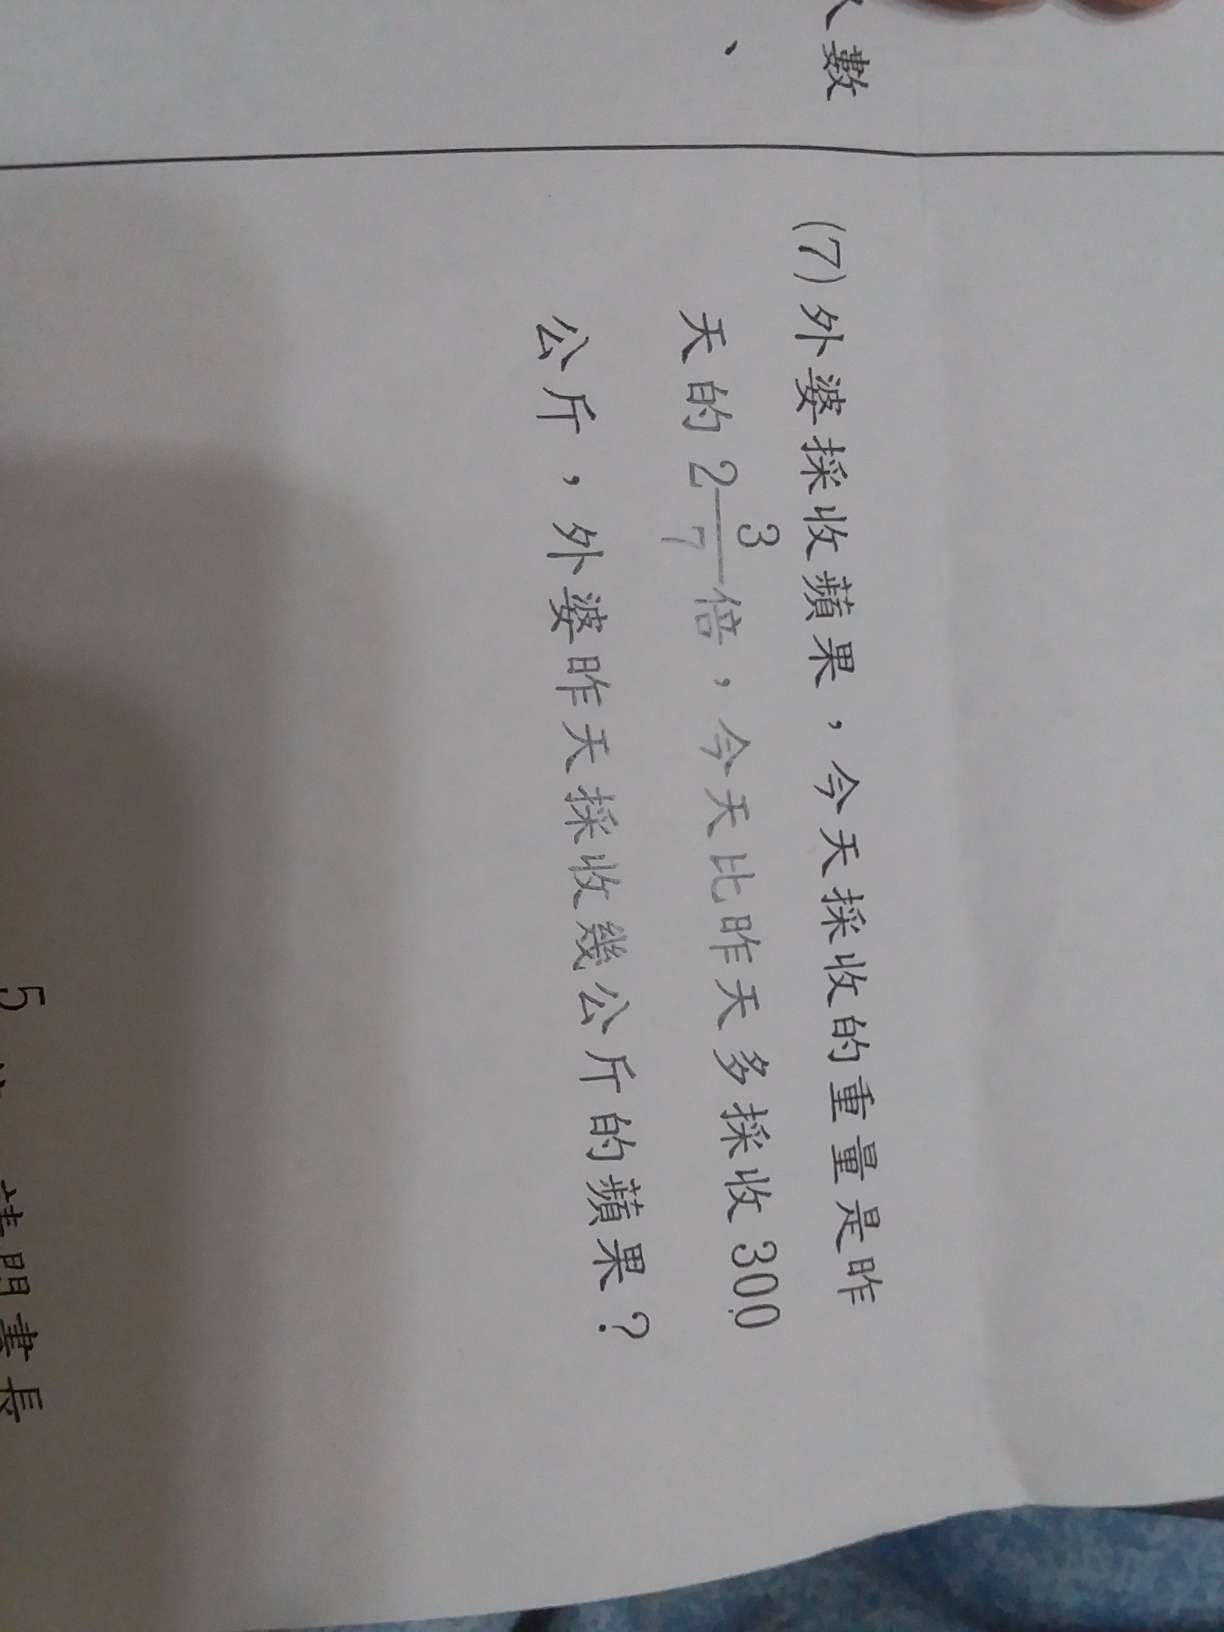 數
、
(7)外婆採收蘋果，今天採收的重量是昨
天的2 3/7倍，今天比昨天多採收300
公斤，外婆昨天採收幾公斤的蘋果？
5
請問書長